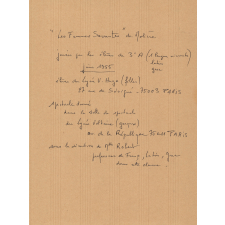 "Les Femmes Savantes" de Molière
jouées par les élèves de 3ᵉ A (
latin
grec
juin 1955
élèves du lycée V. Hugo (filles)
27 rue de Sévigné - 75003 PARIS
Spectacle donné
dans la salle de spectacle
du lycée Voltaire (garçons)
av de la République 75011 PARIS
sous la direction de Mlle
professeur de Français, Latin, Grec
dans cette classe.